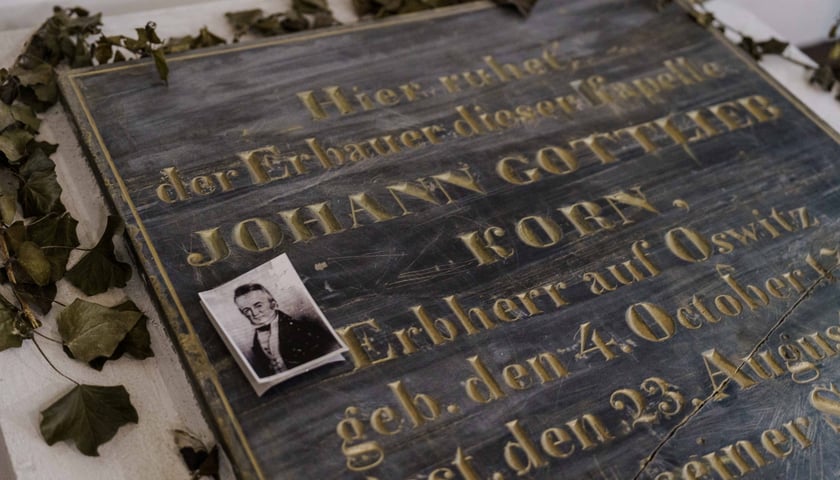 Hier ruhet
der Erbauer dieser Kapelle
JOHANN GOTTLIEB
KORN,
Erbherr auf Oswitz,
geb. den 4. October
den 23. August